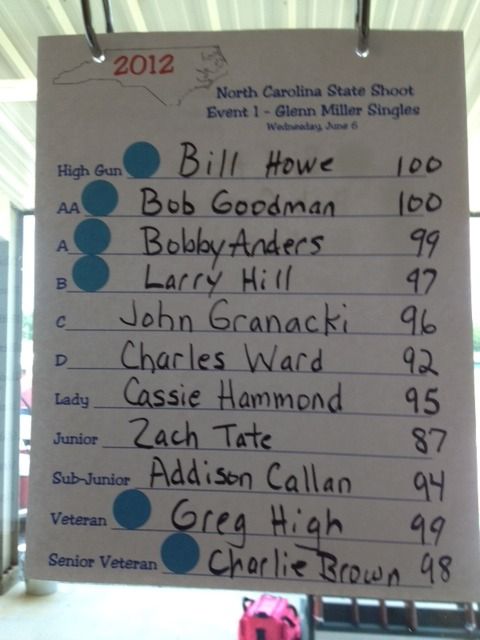 2012
North Carolina State Shoot
Event 1 - Glenn Miller Singles
Wednesday, June 6
High Gun Bill Howe 100
AA Bob Goodman 100
A Bobby Anders 99
B Larry Hill 97
C John Granacki 96
D Charles Ward 92
Lady Cassie Hammond 95
Junior Zach Tate 87
Sub-Junior Addison Callan 94
Veteran Greg High 99
Senior Veteran Charlie Brown 98